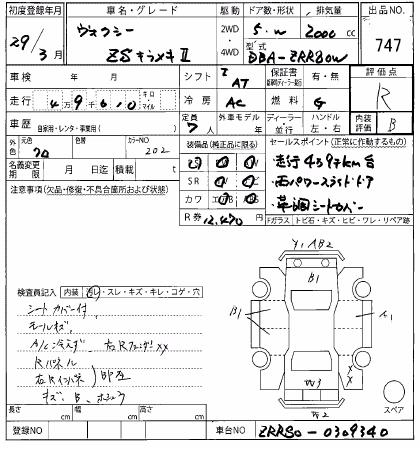 初度登録年月 車名・グレード 駆動 ドア数・形状 排気量 出品NO.
29/3月 ヴォクシー 2WD・4WD 5・W 2000cc 747
ZSキラメキⅡ 型式 DBA-ZRR80W
車検 年 月 シフト AT 保証書 有・無 評価点
走行 4万9千610 キロ マイル 冷房 AC 燃料 G R
車歴 自家用・レンタ・事業用( ) 定員 7人 外車モデル 年 ディーラー・並行 ハンドル 左・右 内装評価 B
外色 元色 70 色替 カラーNO 202 装備品(純正品に限る) セールスポイント(正常に動作するもの)
名義変更期限 月 日迄 積載 t ・走行4597km台
注意事項(欠品・修復・不具合箇所および状態) SR ・両パワースライドドア
カワ AB ・革調シートカバー
R券 12,470円 Fガラス トビ石・キズ・ヒビ・ワレ・リペア跡
Y1 AB2
B1
検査員記入 内装 汚レ・スレ・キズ・キレ・コゲ・穴
シートカバー付
B1 A1
モールキズ
A/C冷えず 右Rフェンダ XX
Rパネル
右Rインパネ 即圧
キズ、B、
W3
スペア
長さ cm 幅 cm 高さ cm
登録NO 車台NO ZRR80-0309340